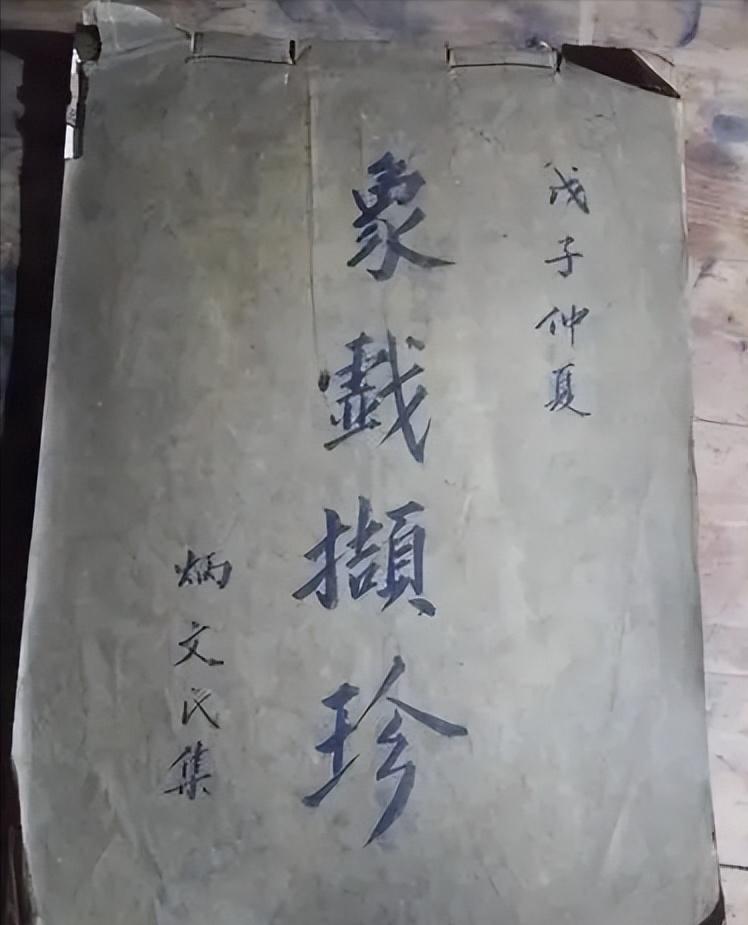 戊子仲夏
象戯擷珍
炳文氏集